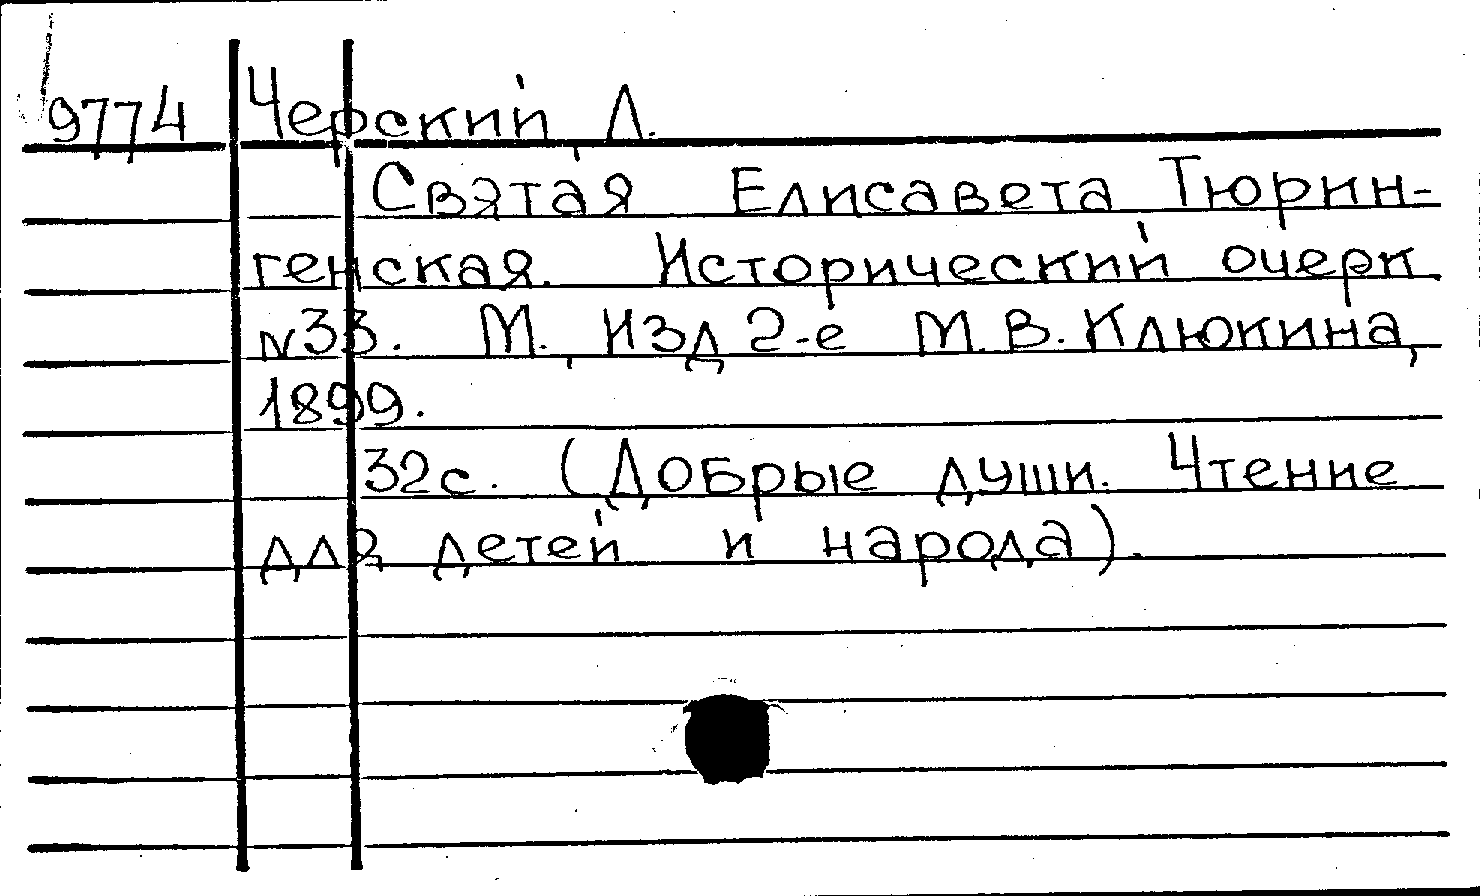 9774 Черский Л.
Святая Елисавета Тюрин-
генская. Исторический очерк
N33. М., изд 2-е М.В. Клюкина,
1899.
32с. (Добрые души. Чтение
для детей и народа).